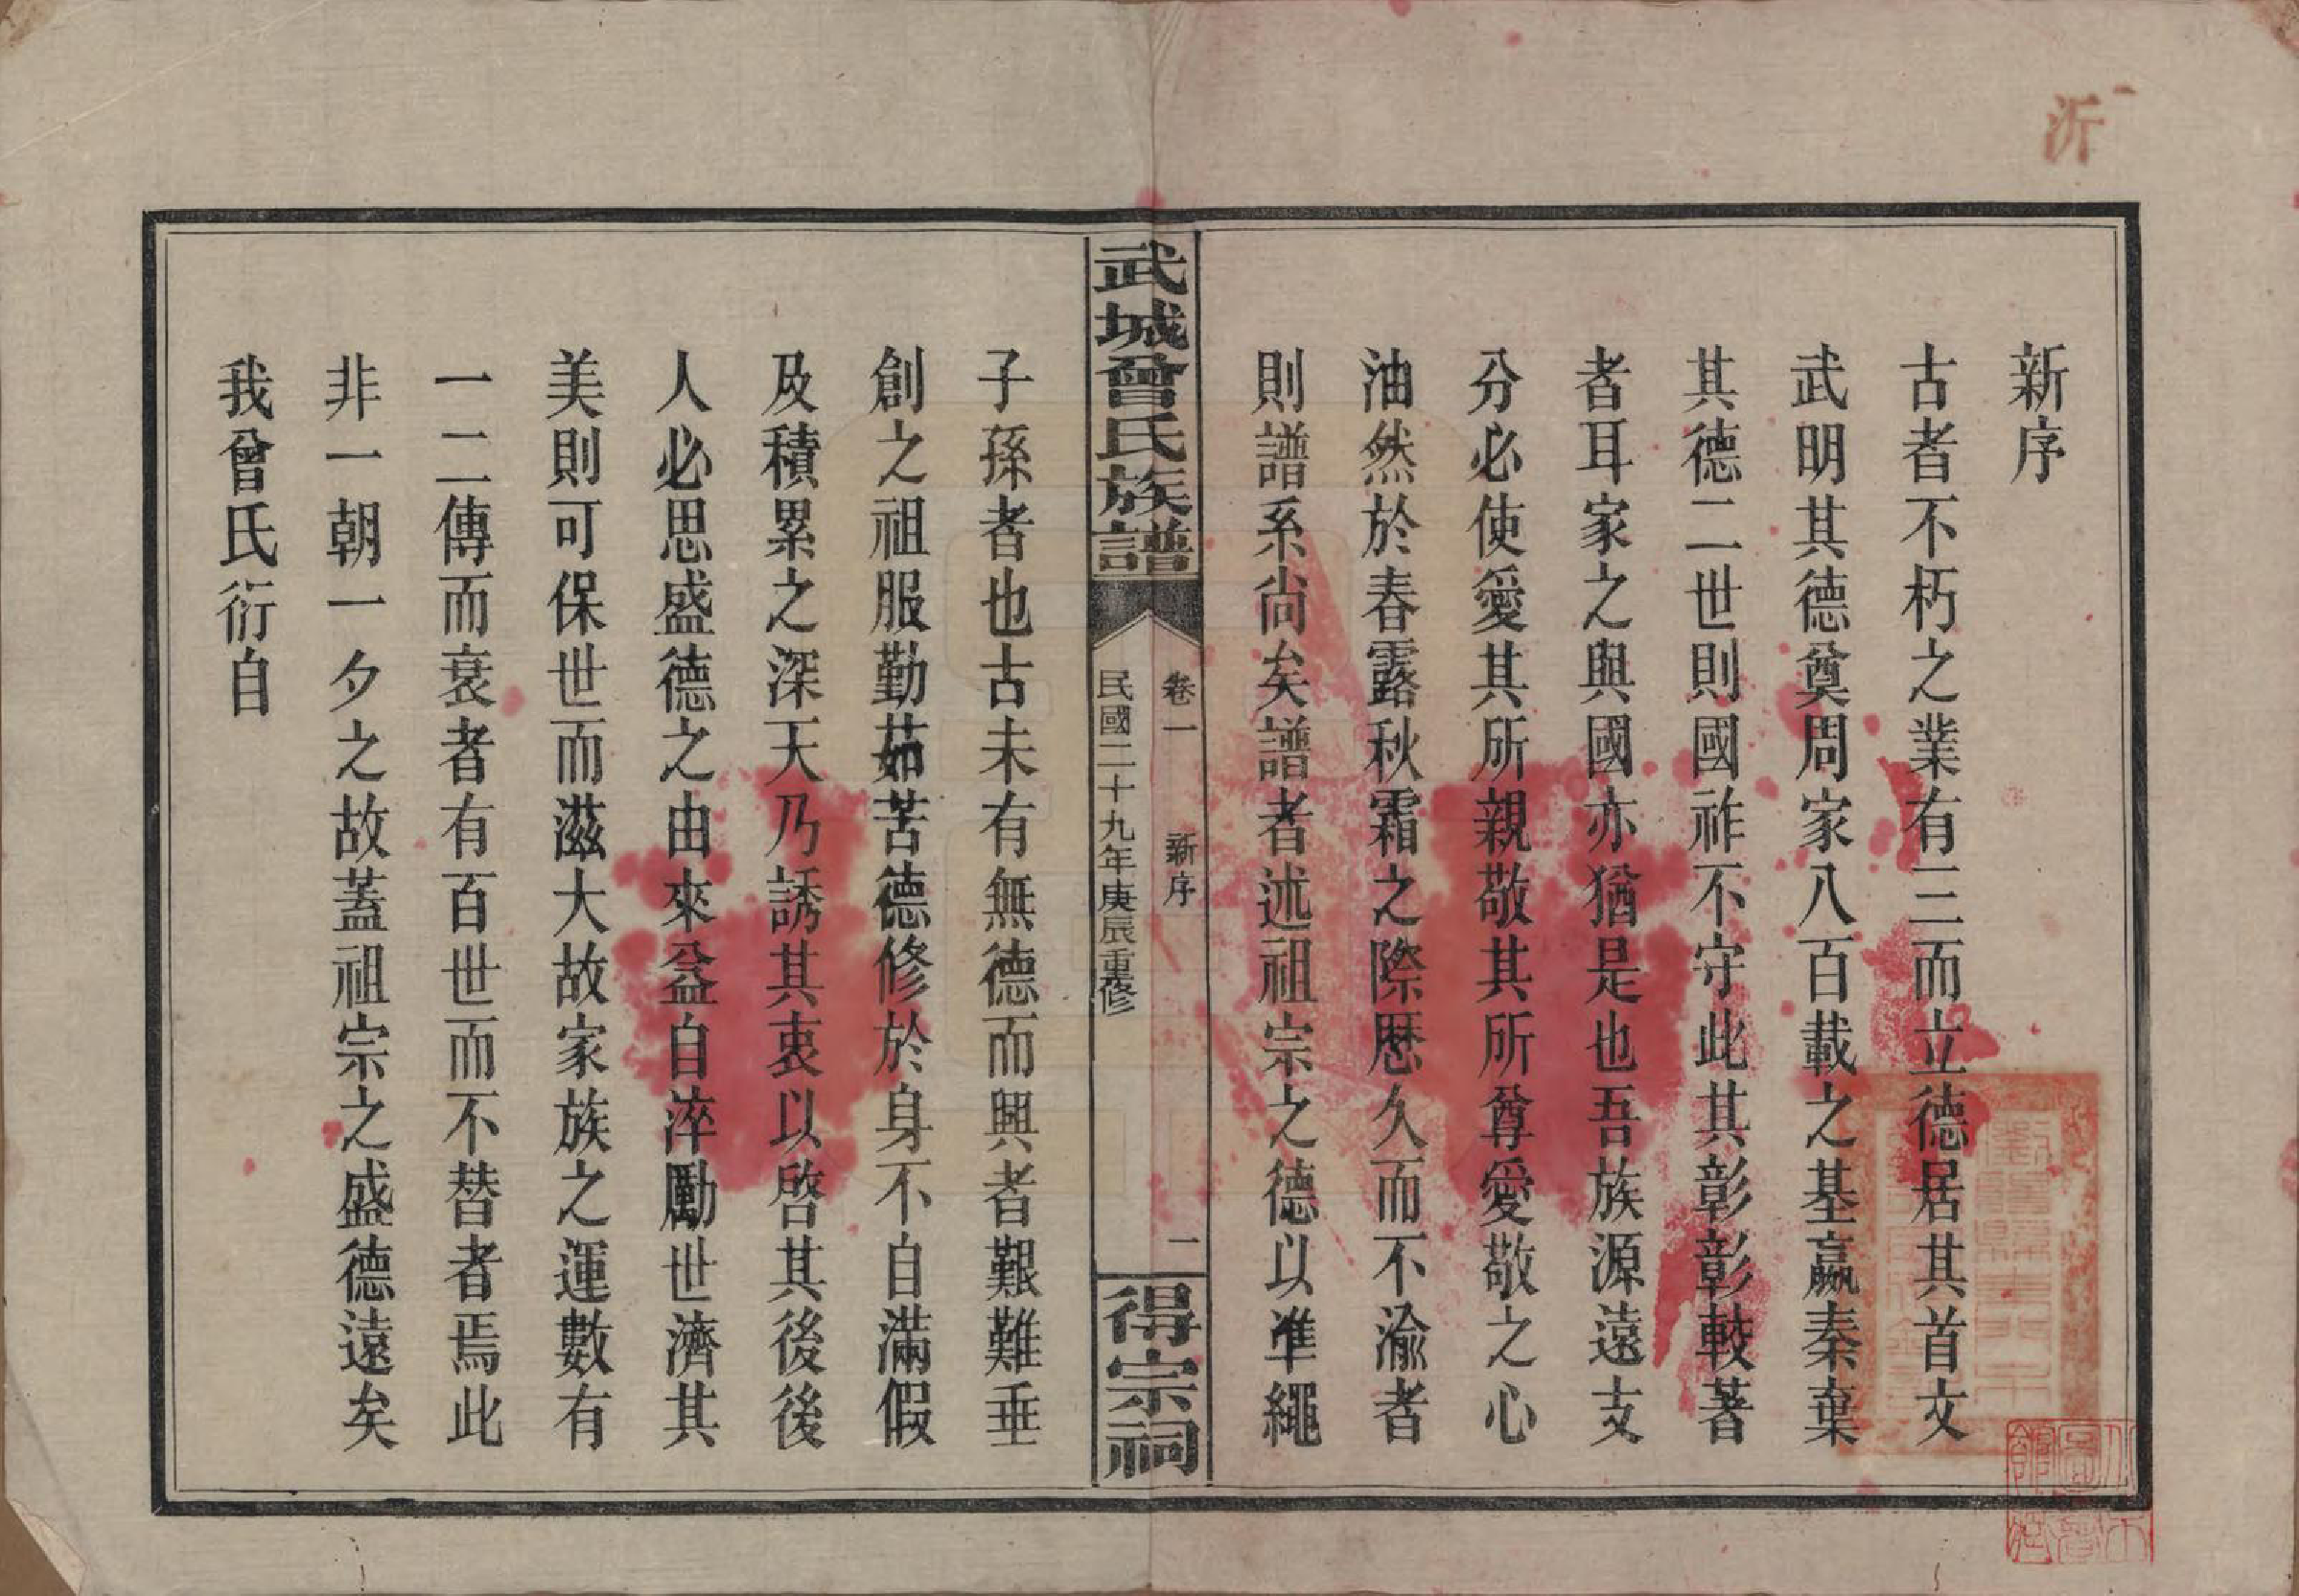 沂
新序
古者不朽之業有三而立德居其首文
武明其德奠周家八百載之基嬴秦棄
其德二世則國祚不守此其彰彰較著
者耳家之與國亦猶是也吾族源遠支
分必使愛其所親敬其所尊愛敬之心
油然於春露秋霜之際歷久而不渝者
則譜系尚矣譜者述祖宗之德以準繩
武城曾氏族譜
卷一 新序 一
民國二十九年庚辰重修
得宗祠
子孫者也古未有無德而興者艱難垂
創之祖服勤茹苦德修於身不自滿假
及積累之深天乃誘其衷以啓其後後
人必思盛德之由來益自淬勵世濟其
美則可保世而滋大故家族之運數有
一二傳而衰者有百世而不替者焉此
非一朝一夕之故蓋祖宗之盛德遠矣
我曾氏衍自